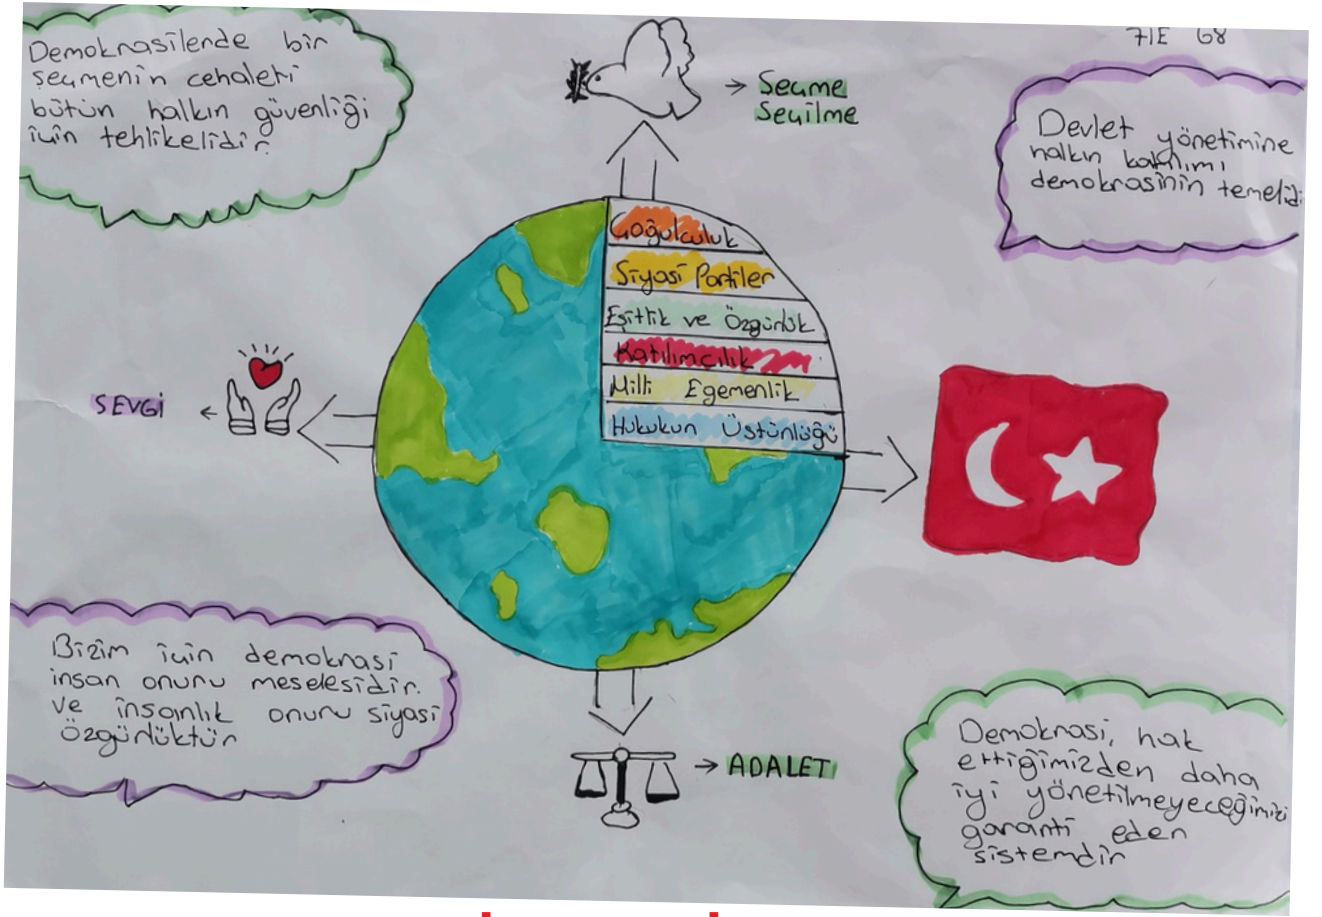 7/E 68
Demokrasilerde bir
seçmenin cehaleti
bütün halkın güvenliği
için tehlikelidir.
Seçme
Seçilme
Devlet yönetimine
halkın katılımı
demokrasinin temelidi
Çoğulculuk
Siyasi Partiler
Eşitlik ve Özgürlük
Katılımcılık
Milli Egemenlik
Hukukun Üstünlüğü
SEVGİ
Bizim için demokrasi
insan onuru meselesidir.
ve insanlık onuru siyasi
özgürlüktür
ADALET
Demokrasi, hak
ettiğimizden daha
iyi yönetilmeyeceğimizi
garanti eden
sistemdir